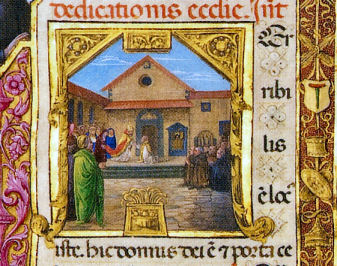 dedicationis ecclie. Int
Ter
ribi
lis
ē locꝰ
iste. hic domus dei ē ⁊ porta ce